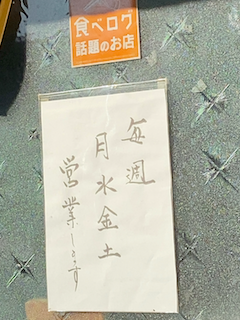 食べログ
話題のお店
毎週
月水金土
営業します